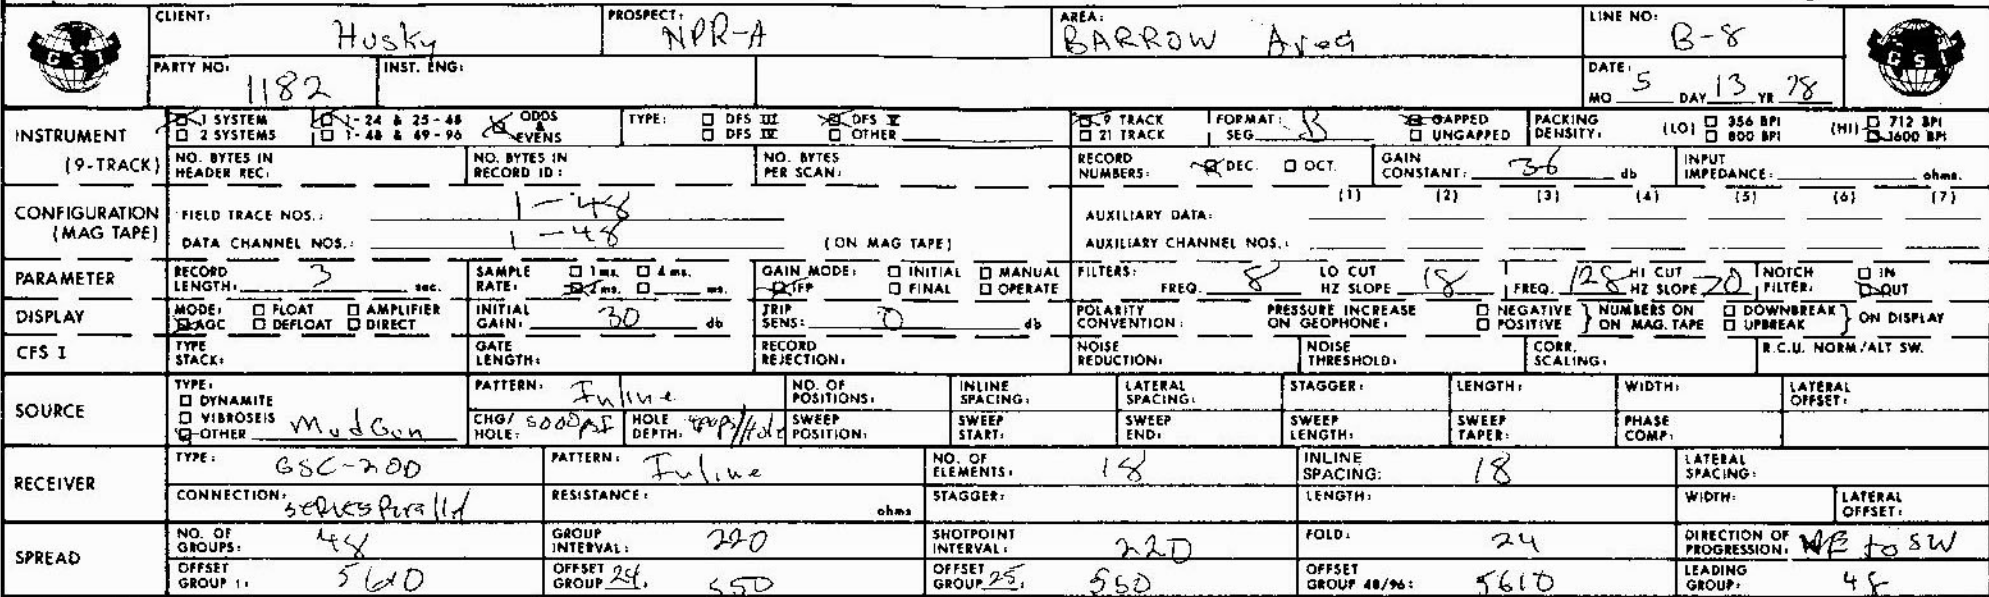 CLIENT: Husky PROSPECT: NPR-A AREA: BARROW Area LINE NO: B-8
GSI GSI
PARTY NO: 1182 INST. ENG: DATE: MO 5 DAY 13 YR 78
INSTRUMENT (9-TRACK)
1 SYSTEM 1-24 & 25-48 ODDS & EVENS TYPE: DFS III DFS V 9 TRACK FORMAT: SEG B GAPPED PACKING DENSITY: (LO) 356 BPI (HI) 712 BPI
2 SYSTEMS 1-48 & 49-96 DFS IV OTHER 21 TRACK UNGAPPED 800 BPI 1600 BPI
NO. BYTES IN HEADER REC: NO. BYTES IN RECORD ID: NO. BYTES PER SCAN: RECORD NUMBERS: DEC. OCT. GAIN CONSTANT: 36 db INPUT IMPEDANCE: ohms.
CONFIGURATION (MAG TAPE)
FIELD TRACE NOS.: 1-48 AUXILIARY DATA: (1) (2) (3) (4) (5) (6) (7)
DATA CHANNEL NOS.: 1-48 (ON MAG TAPE) AUXILIARY CHANNEL NOS.:
PARAMETER RECORD LENGTH: 3 sec. SAMPLE RATE: 1 ms. 4 ms. 2 ms. ms. GAIN MODE: INITIAL MANUAL IFP FINAL OPERATE FILTERS: FREQ. 8 LO CUT HZ SLOPE 18 FREQ. 128 HI CUT HZ SLOPE 70 NOTCH FILTER: IN OUT
DISPLAY MODE: FLOAT AMPLIFIER AGC DEFLOAT DIRECT INITIAL GAIN: 30 db TRIP SENS: 0 db POLARITY CONVENTION: PRESSURE INCREASE ON GEOPHONE: NEGATIVE POSITIVE } NUMBERS ON MAG. TAPE DOWNBREAK UPBREAK } ON DISPLAY
CFS I TYPE STACK: GATE LENGTH: RECORD REJECTION: NOISE REDUCTION: NOISE THRESHOLD: CORR. SCALING: R.C.U. NORM/ALT SW.
SOURCE
TYPE: DYNAMITE VIBROSEIS OTHER Mud Gun PATTERN: Inline NO. OF POSITIONS: INLINE SPACING: LATERAL SPACING: STAGGER: LENGTH: WIDTH: LATERAL OFFSET:
CHG/HOLE: 5000 PSI HOLE DEPTH: /Hole SWEEP POSITION: SWEEP START: SWEEP END: SWEEP LENGTH: SWEEP TAPER: PHASE COMP:
RECEIVER
TYPE: GSC-20D PATTERN: Inline NO. OF ELEMENTS: 18 INLINE SPACING: 18 LATERAL SPACING:
CONNECTION: series Parallel RESISTANCE: ohms STAGGER: LENGTH: WIDTH: LATERAL OFFSET:
SPREAD
NO. OF GROUPS: 48 GROUP INTERVAL: 220 SHOTPOINT INTERVAL: 220 FOLD: 24 DIRECTION OF PROGRESSION: NE to SW
OFFSET GROUP 1: 5610 OFFSET GROUP 24: 550 OFFSET GROUP 25: 550 OFFSET GROUP 48/96: 5610 LEADING GROUP: 48